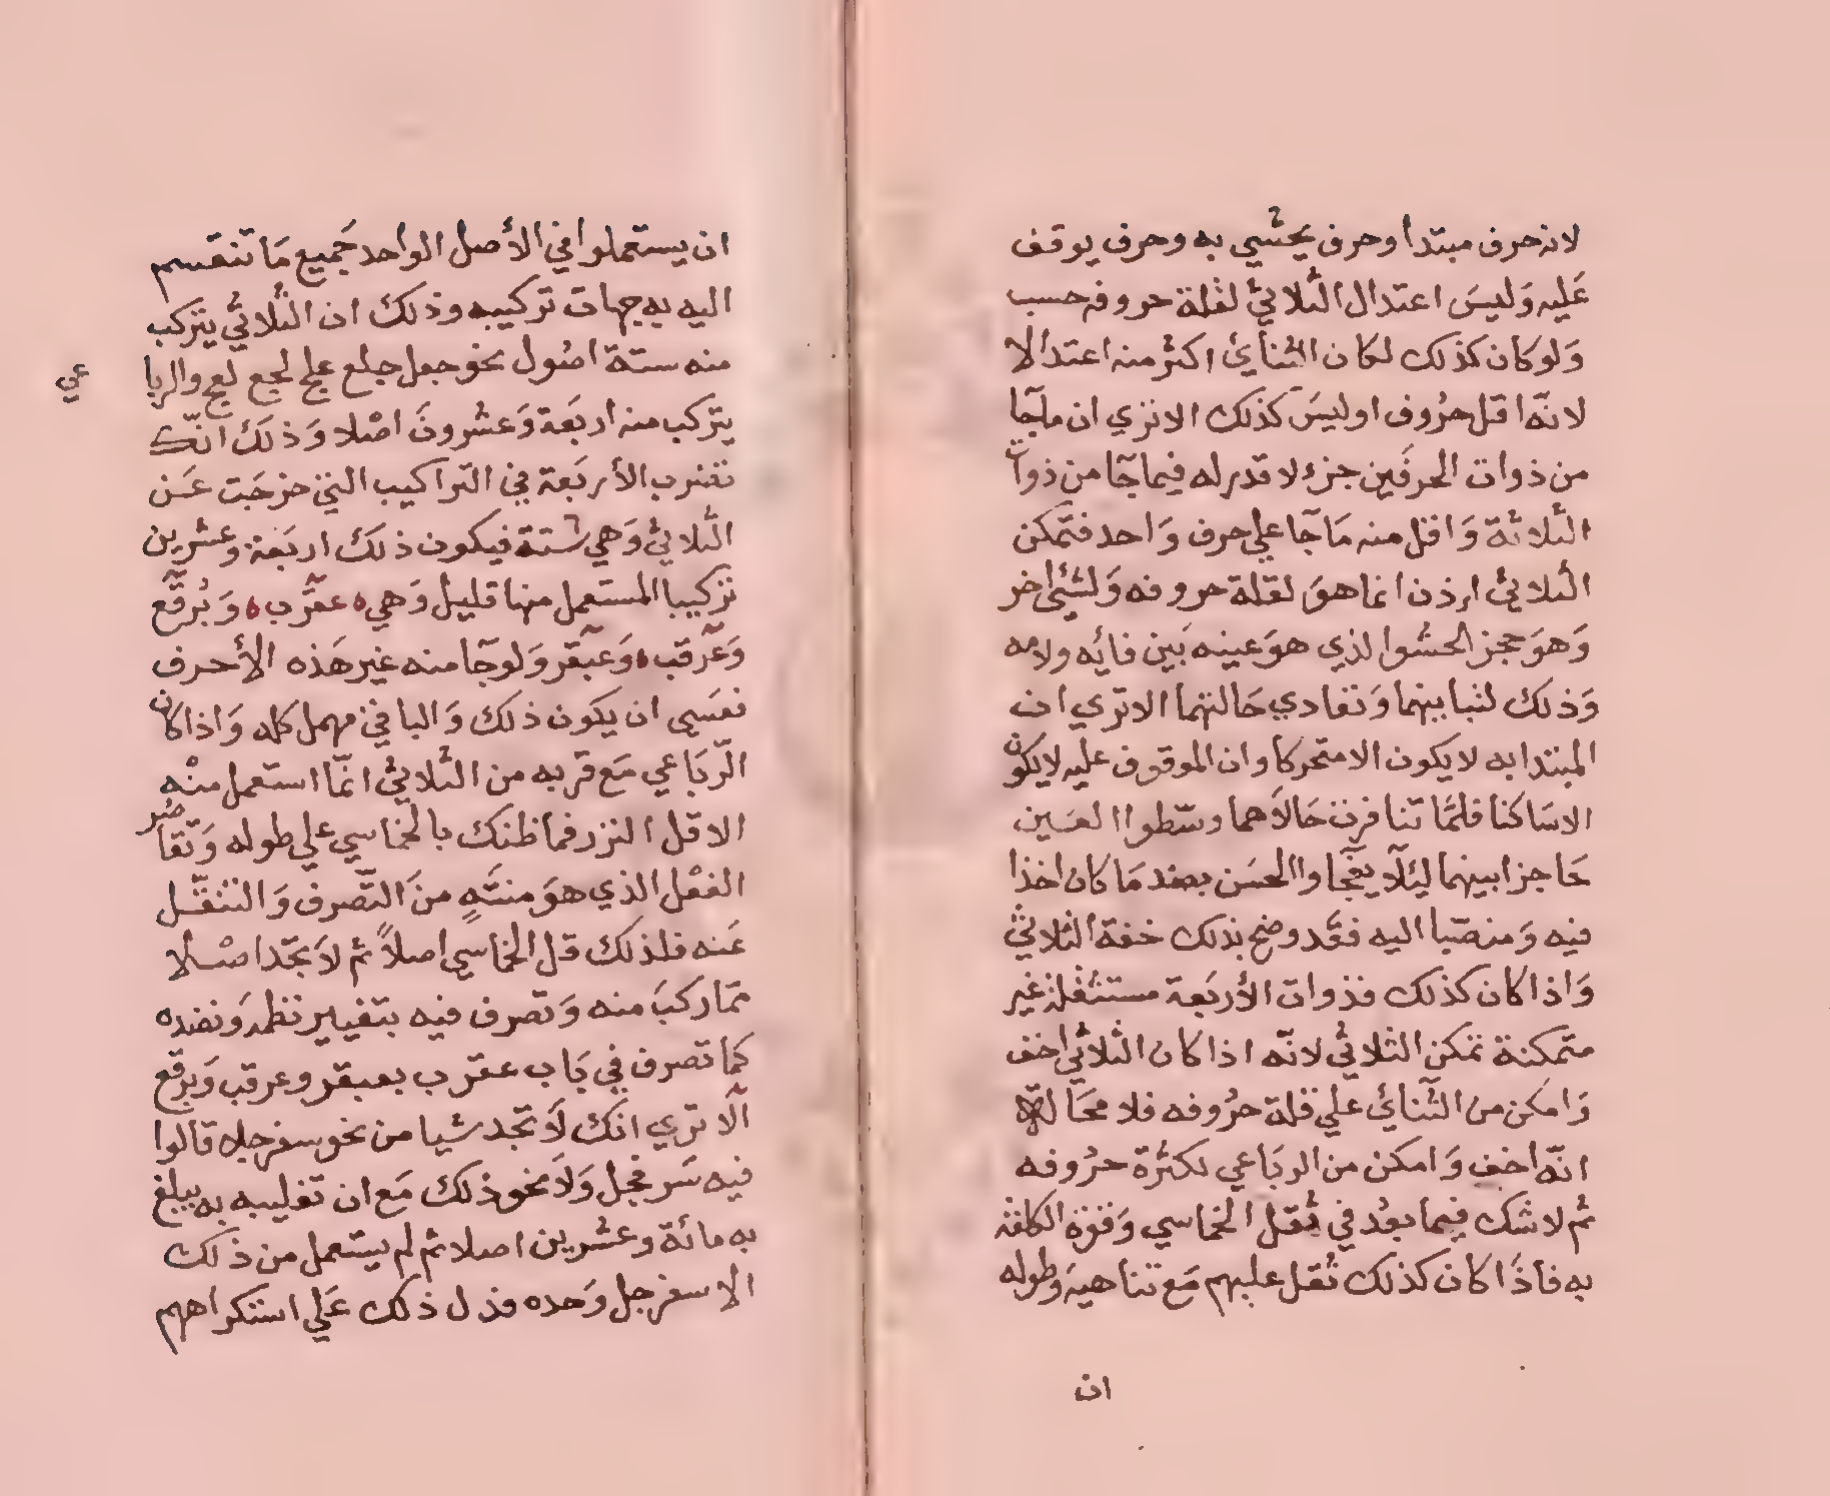 لانه حرف مبتدا وحرف يحشي به وحرف يوقف
عَليه وَليسَ اعتدال الثلاثي لقلة حروفه حسب
وَلو كان كذلك لكان الثنائي اكثر منه اعتدالا
لانّه اقل حرُوف اوليسَ كذلك الا تري ان ماجآ
من ذوات الحرفَين جزء لا قدر له فيما جآ من ذوات
الثلاثة وَاقل منه مَا جآ علي حرف وَاحد فتمكن
الثلاثي اذن انما هوَ لقلة حروفه وَلشئ اخر
وَهوَ حجز الحشوا لذي هوَ عينه بَين فائه ولامه
وَذلك لتباينهما وَتعادي حَالتهما الا تري ان
المبتدا به لا يكون الا متحركا وان الموقوف عليه لا يكون
الا سَاكنا فلمَّا تنافرت حَالاَهما وسّطوا العَين
حَاجزا بينهما ليئلّا يفجآوا الحسَن بضد مَا كان اخذا
فيه وَمنصّبا اليه فقَد وضح بذلك خفة الثلاثي
وَاذا كان كذلك فذوات الأربَعة مستثقلة غير
متمكنة تمكن الثلاثي لانّه اذا كان الثلاثي اخف
وَامكن من الثّنائي علي قلة حرُوفه فلا محَالة
انّه اخف وَامكن من الربَاعي لكثرة حرُوفه
ثم لا شك فيما بعُد في ثقل الخماسي وَقوة الكلفة
به فاذَا كان كذلك ثقل عليهم مَع تناهيه وطوله
ان
ان يستعملوا في الأصل الواحد جَميع مَا تنقسم
اليه به جهات تركيبه وذلك ان الثلاثي يتركب
منه ستة اصُول نحو جعل جلع علج لجع لعج والربا
عي
يتركب منه اربَعة وَعشرونَ اصْلا وَذلكَ انّك
تضرب الأربَعة في التراكيب التي خرجَت عَن
الثلاثي وَهي ستة فيكون ذلك اربَعة وعشرين
تركيبا المستعمل منها قليل وَهي عقرب وَبُرقع
وَعرقب وَعبقر وَلو جآ منه غير هَذه الأحرف
فعَسي ان يكون ذلك وَالباقي مهمل كله وَاذا كان
الرّبَاعي مَع قربه من الثلاثي انمّا استعمل منْه
الاقل النزر فما ظنك بالخماسي علي طوله وَتقاصُر
الفعْل الذي هوَ منتَهٍ منَ التّصرف وَالتنقّل
عَنه فلذلك قل الخماسي اصلاً ثم لاَ تجّد اصْلا
ممّا ركبَ منه وَتصرف فيه بتغيير نظمه وَنضده
كما تصرف في بَاب عقرب بعبقر وعرقب وَبرقع
ألا تري انك لاَ تجَد شيا من نحو سفرجل قالوا
فيه سَرفجل وَلاَ نحو ذلك مَع ان تقليبه به يبلغ
به مائة وعشرين اصلا ثم لم يستعمل من ذلك
الا سفرجل وَحده فدل ذلك عَلي استكراههم